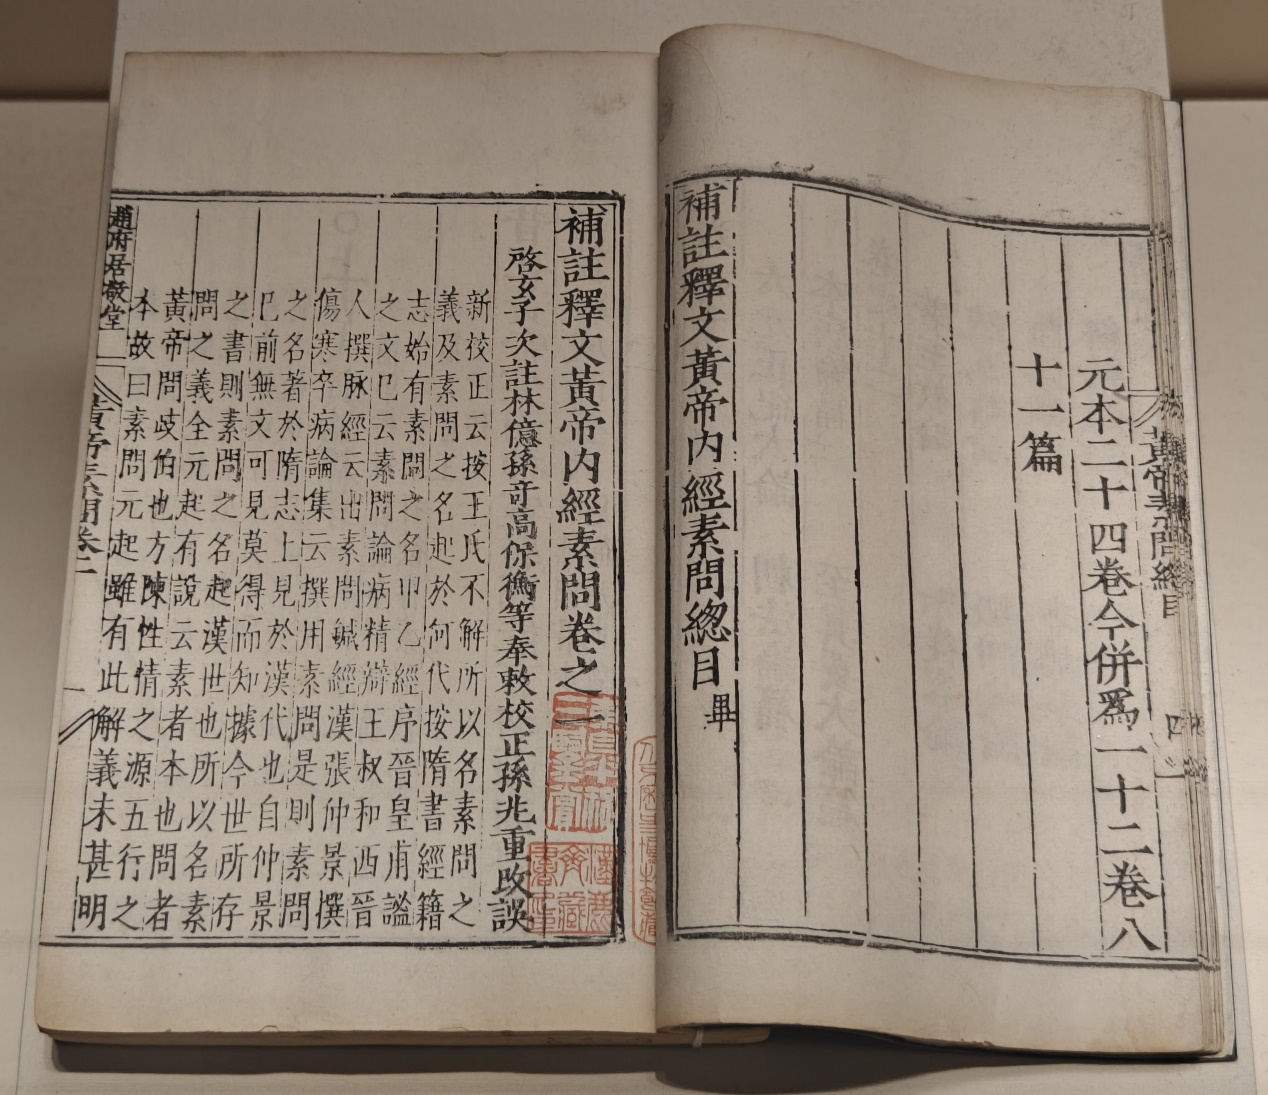 元本二十四卷今併爲一十二卷八
十一篇
補註釋文黃帝内經素問總目畢
黃帝素問總目
四
補註釋文黃帝内經素問卷之一
啓玄子次註林億孫竒高保衡等奉敕校正孫兆重改誤
新校正云按王氏不解所以名素問之
義及素問之名起於何代按隋書經籍
志始有素問之名甲乙經序晉皇甫謐
之文已云素問論病精辯王叔和西晉
人撰脉經云出素問鍼經漢張仲景撰
傷寒卒病論集云撰用素問是則素問
之名著於隋志上見於漢代也自仲景
已前無文可見莫得而知據今世所存
之書則素問之名起漢世也所以名素
問之義全元起有說云素者本也問者
黃帝問歧伯也方陳性情之源五行之
本故曰素問元起雖有此解義未甚明
趙府居敬堂
黃帝素問卷一
一